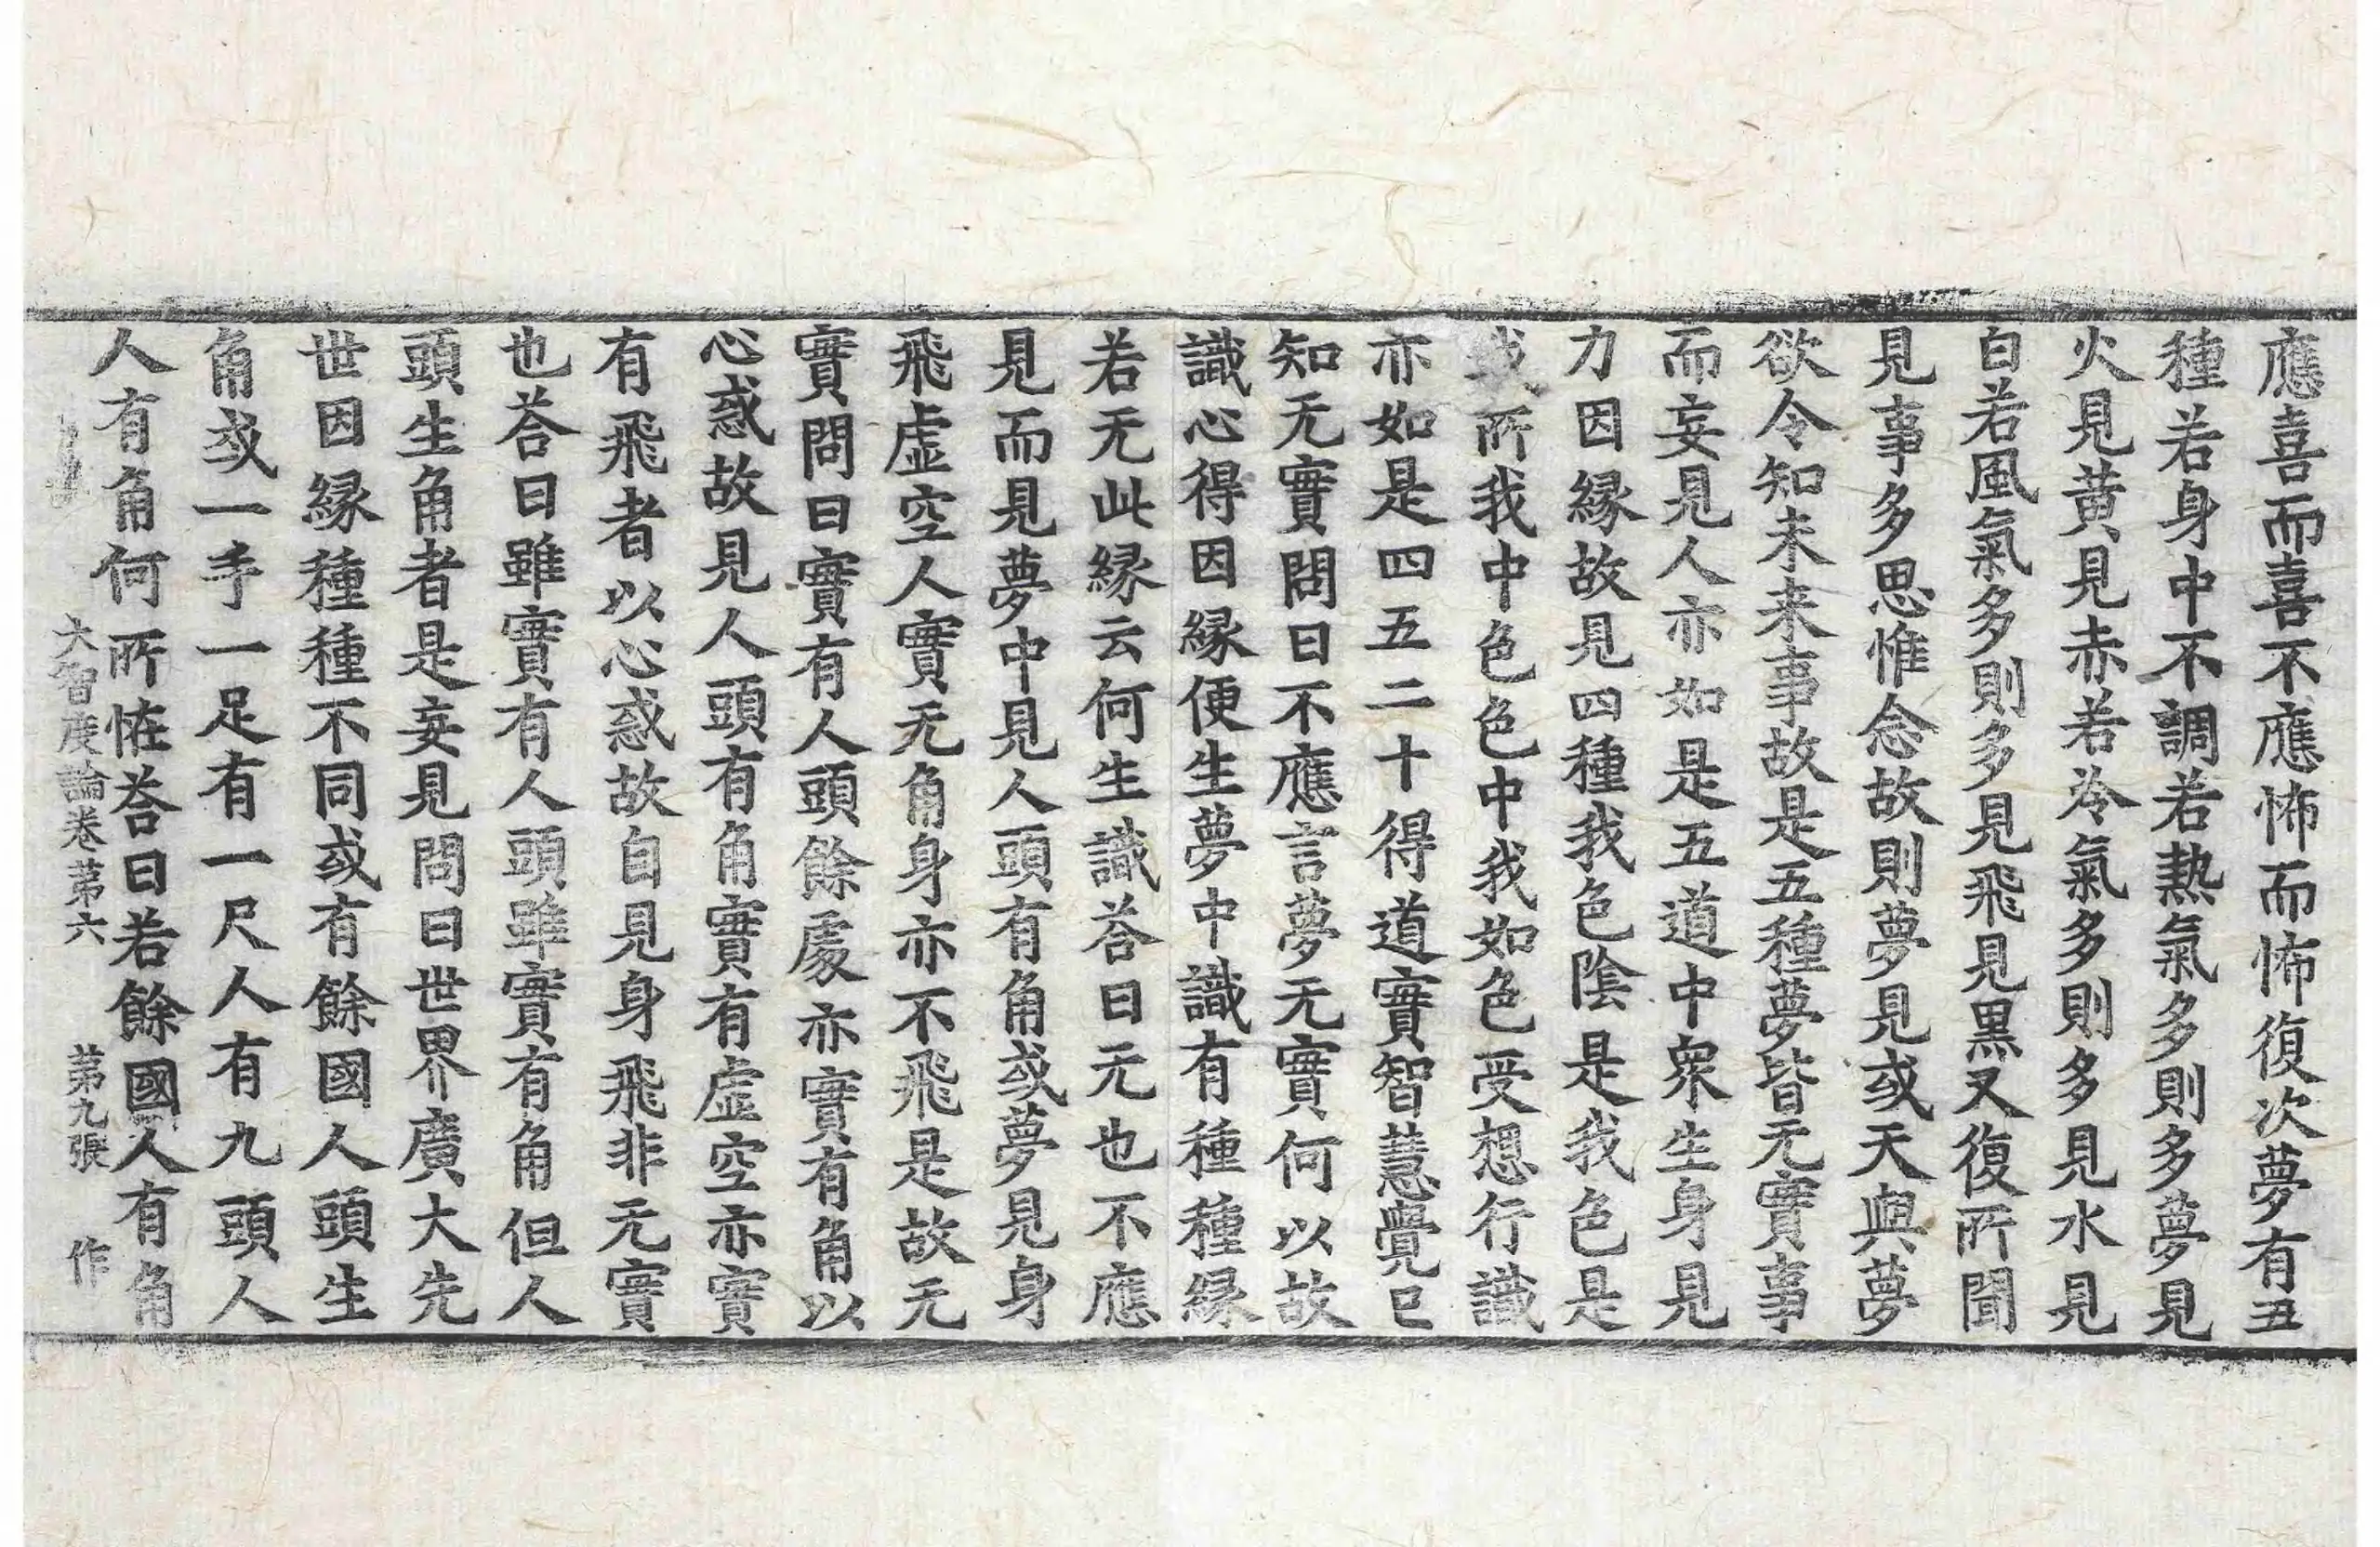 應喜而喜不應怖而怖復次夢有五
種若身中不調若熱氣多則多夢見
火見黃見赤若冷氣多則多見水見
白若風氣多則多見飛見黑又復所聞
見事多思惟念故則夢見或天與夢
欲令知未来事故是五種夢皆无實事
而妄見人亦如是五道中衆生身見
力因縁故見四種我色陰是我色是
我所我中色色中我如色受想行識
亦如是四五二十得道實智慧覺已
知无實問曰不應言夢无實何以故
識心得因縁便生夢中識有種種縁
若无此縁云何生識荅曰无也不應
見而見夢中見人頭有角或夢見身
飛虛空人實无角身亦不飛是故无
實問曰實有人頭餘處亦實有角以
心惑故見人頭有角實有虛空亦實
有飛者以心惑故自見身飛非无實
也荅曰雖實有人頭雖實有角但人
頭生角者是妄見問曰世界廣大先
世因縁種種不同或有餘國人頭生
角或一手一足有一尺人有九頭人
人有角何所恠荅曰若餘國人有角
大智度論卷第六 第九張 作